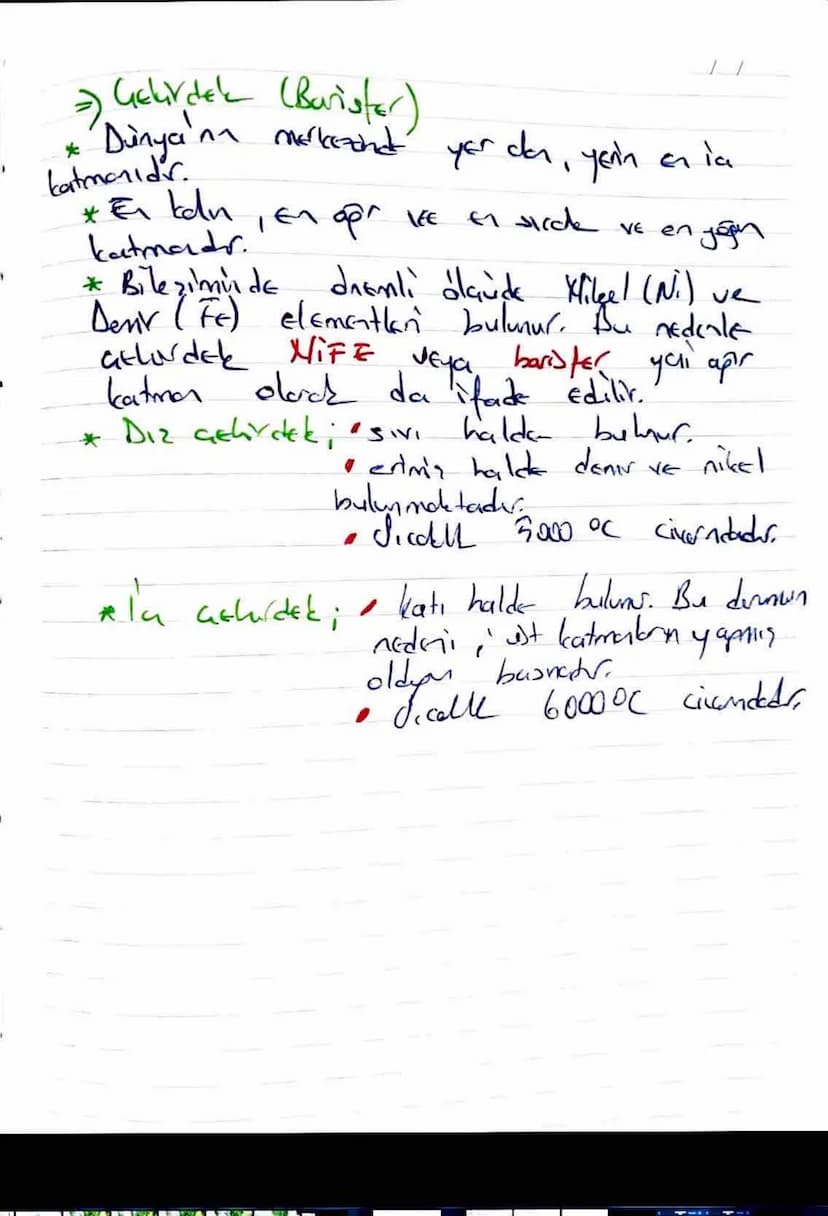 / /
⇒ Çekirdek (Barisfer)
* Dünya'nın merkezinde yer alan, yerin en iç
katmanıdır.
* En kalın, en ağır ve en sıcak ve en yoğun
katmandır.
* Bileşiminde önemli ölçüde Nikel (Ni) ve
Demir (Fe) elementleri bulunur. Bu nedenle
çekirdek NiFE veya barisfer yani ağır
katman olarak da ifade edilir.
* Dış çekirdek; • sıvı halde bulunur.
• erimiş halde demir ve nikel
bulunmaktadır.
• Sıcaklık 5000 °C civarındadır.
* İç çekirdek; • katı halde bulunur. Bu durumun
nedeni, üst katmanların yapmış
olduğu basınçtır.
• Sıcaklık 6000 °C civarındadır.